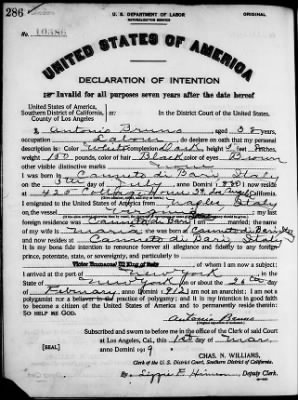 286
U. S. DEPARTMENT OF LABOR
NATURALIZATION SERVICE
ORIGINAL
No. 10386
UNITED STATES OF AMERICA
DECLARATION OF INTENTION
Invalid for all purposes seven years after the date hereof
United States of America,
Southern District of California,
County of Los Angeles
In the District Court of the United States.
I, Antonio Bruno, aged 38 years,
occupation Labour, do declare on oath that my personal
description is: Color White, complexion Dark, height 5 feet inches,
weight 150 pounds, color of hair Black, color of eyes Brown
other visible distinctive marks
I was born in Canneto di Bari, Italy
on the day of July, anno Domini 1880; I now reside
at 420 , California.
I emigrated to the United States of America from Naples, Italy
on the vessel ; my last
foreign residence was Canneto di Bari; I am married; the name
of my wife is Maria; she was born at Canneto di Bari, Italy
and now resides at Canneto di Bari, Italy
It is my bona fide intention to renounce forever all allegiance and fidelity to any foreign
prince, potentate, state, or sovereignty, and particularly to
Victor Emmanuel III King of Italy, of whom I am now a subject;
I arrived at the port of New York, in the
State of New York, on or about the 26th day
of February, anno Domini 1912; I am not an anarchist; I am not a
polygamist nor a believer in the practice of polygamy; and it is my intention in good faith
to become a citizen of the United States of America and to permanently reside therein:
SO HELP ME GOD.
Antonio Bruno
(Original signature of declarant.)
Subscribed and sworn to before me in the office of the Clerk of said Court
at Los Angeles, Cal., this day of Mar.
[SEAL]
anno Domini 1919
CHAS. N. WILLIAMS,
Clerk of the U. S. District Court, Southern District of California.
By , Deputy Clerk.